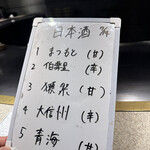 日本酒 2/4
1 まつもと (甘)
2 伯楽星 (辛)
3 磯乗 (甘)
4 大信州 (辛)
5 青海 (甘)